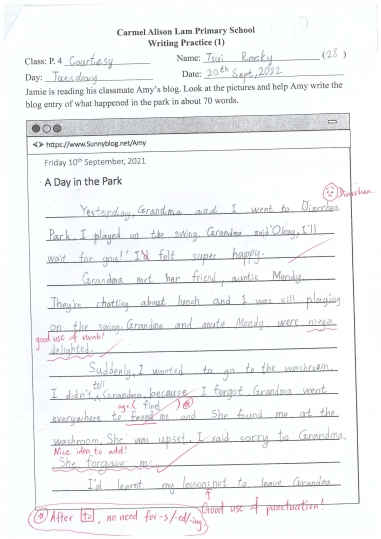 Carmel Alison Lam Primary School
Writing Practice (1)
Class: P. 4 Courtesy Name: Tsui Rocky (28)
Day: Tuesday Date: 20th Sept, 2022
Jamie is reading his classmate Amy's blog. Look at the pictures and help Amy write the
blog entry of what happened in the park in about 70 words.
https://www.Sunnyblog.net/Amy
Friday 10th September, 2021
A Day in the Park
Diarrhea...
Yesterday, Grandma and I went to Diarrhea
Park. I played on the swing. Grandma said "Okay, I'll
wait for you!" I'd felt super happy.
Grandma met her friend, auntie Mondy.
They're chatting about lunch and I was still playing
on the swing. Grandma and aunte Mondy were mega
good use of vocab!
delighted.
Suddenly, I wanted to go to the washroom.
tell
I didn't Grandma, because I forgot. Grandma went
( find )
everywhere to found me and She found me at the
washroom. She was upset, I said sorry to Grandma.
Nice idea to add!
She forgave me.
I'd learnt my lesson: not to leave Grandma
Good use of punctuation!
After to, no need for -s/-ed/-ing